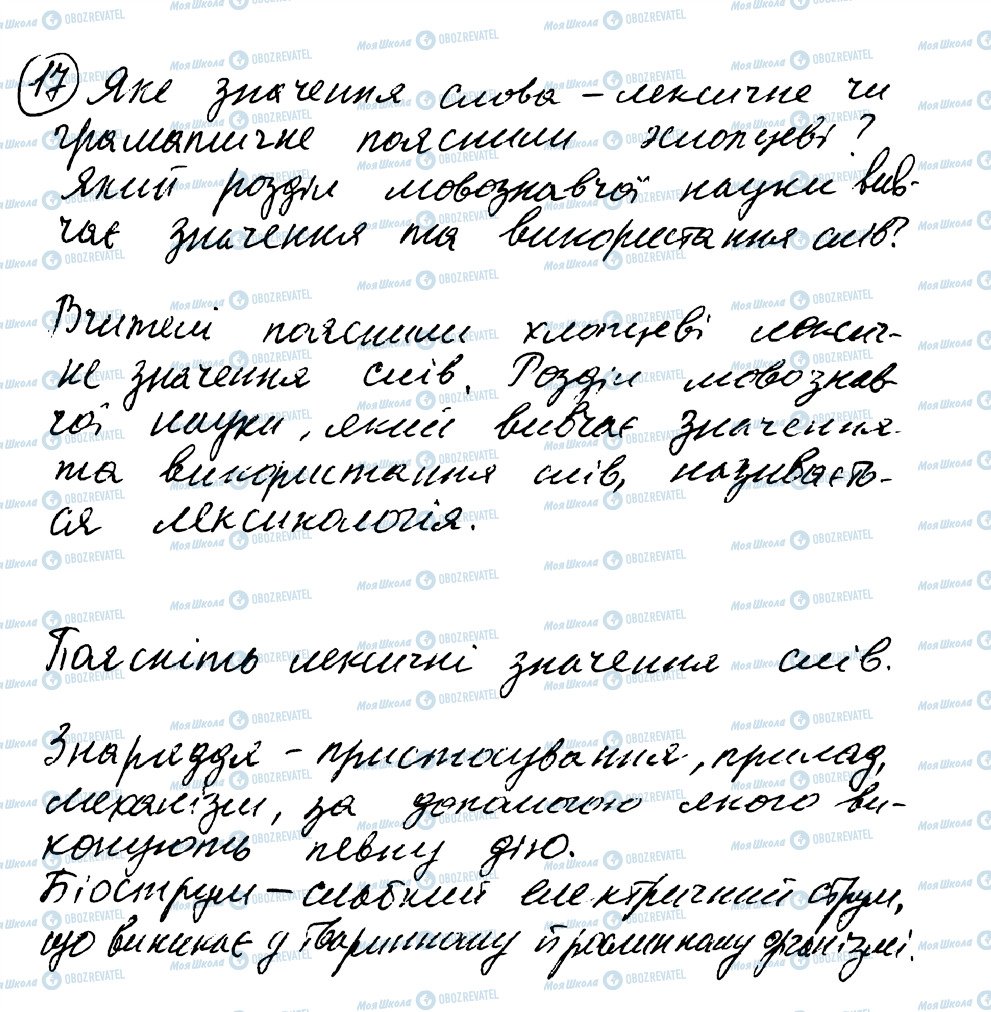 17 Яке значення слова – лексичне чи
граматичне пояснили хлопцеві?
Який розділ мовознавчої науки вив-
чає значення та використання слів?
Вчителі пояснили хлопцеві лексич-
не значення слів. Розділ мовознав-
чої науки, який вивчає значення
та використання слів, називаєть-
ся лексикологія.
Поясніть лексичні значення слів.
Знаряддя – пристосування, прилад,
механізм, за допомогою якого ви-
конують певну дію.
Біострум – слабкий електричний струм,
що виникає у тваринному й рослинному організмі.